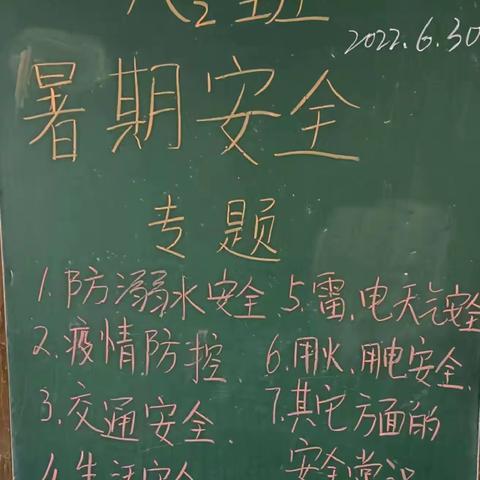 2022.6.30
暑期安全
专题
1.防溺水安全.
2.疫情防控.
3.交通安全.
4.生活安全
5.雷、电天气安全
6.用火、用电安全.
7.其它方面的
安全常识